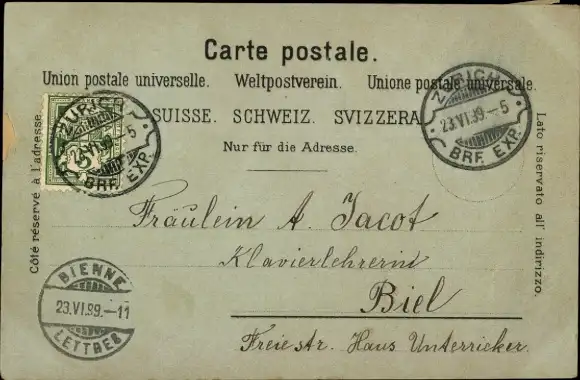 Carte postale.
Union postale universelle. Weltpostverein. Unione postale universale.
SUISSE. SCHWEIZ. SVIZZERA
Nur für die Adresse.
Côté réservé à l'adresse.
Lato riservato all' indirizzo.
ZÜRICH
23.VI.99.-5
BRF. EXP.
5
ZÜRICH
23.VI.99.-5
BRF. EXP.
Fräulein A. Jacot
Klavierlehrerin
Biel
Freiestr. Haus Unterricker.
BIENNE
23.VI.99.-11
LETTRES